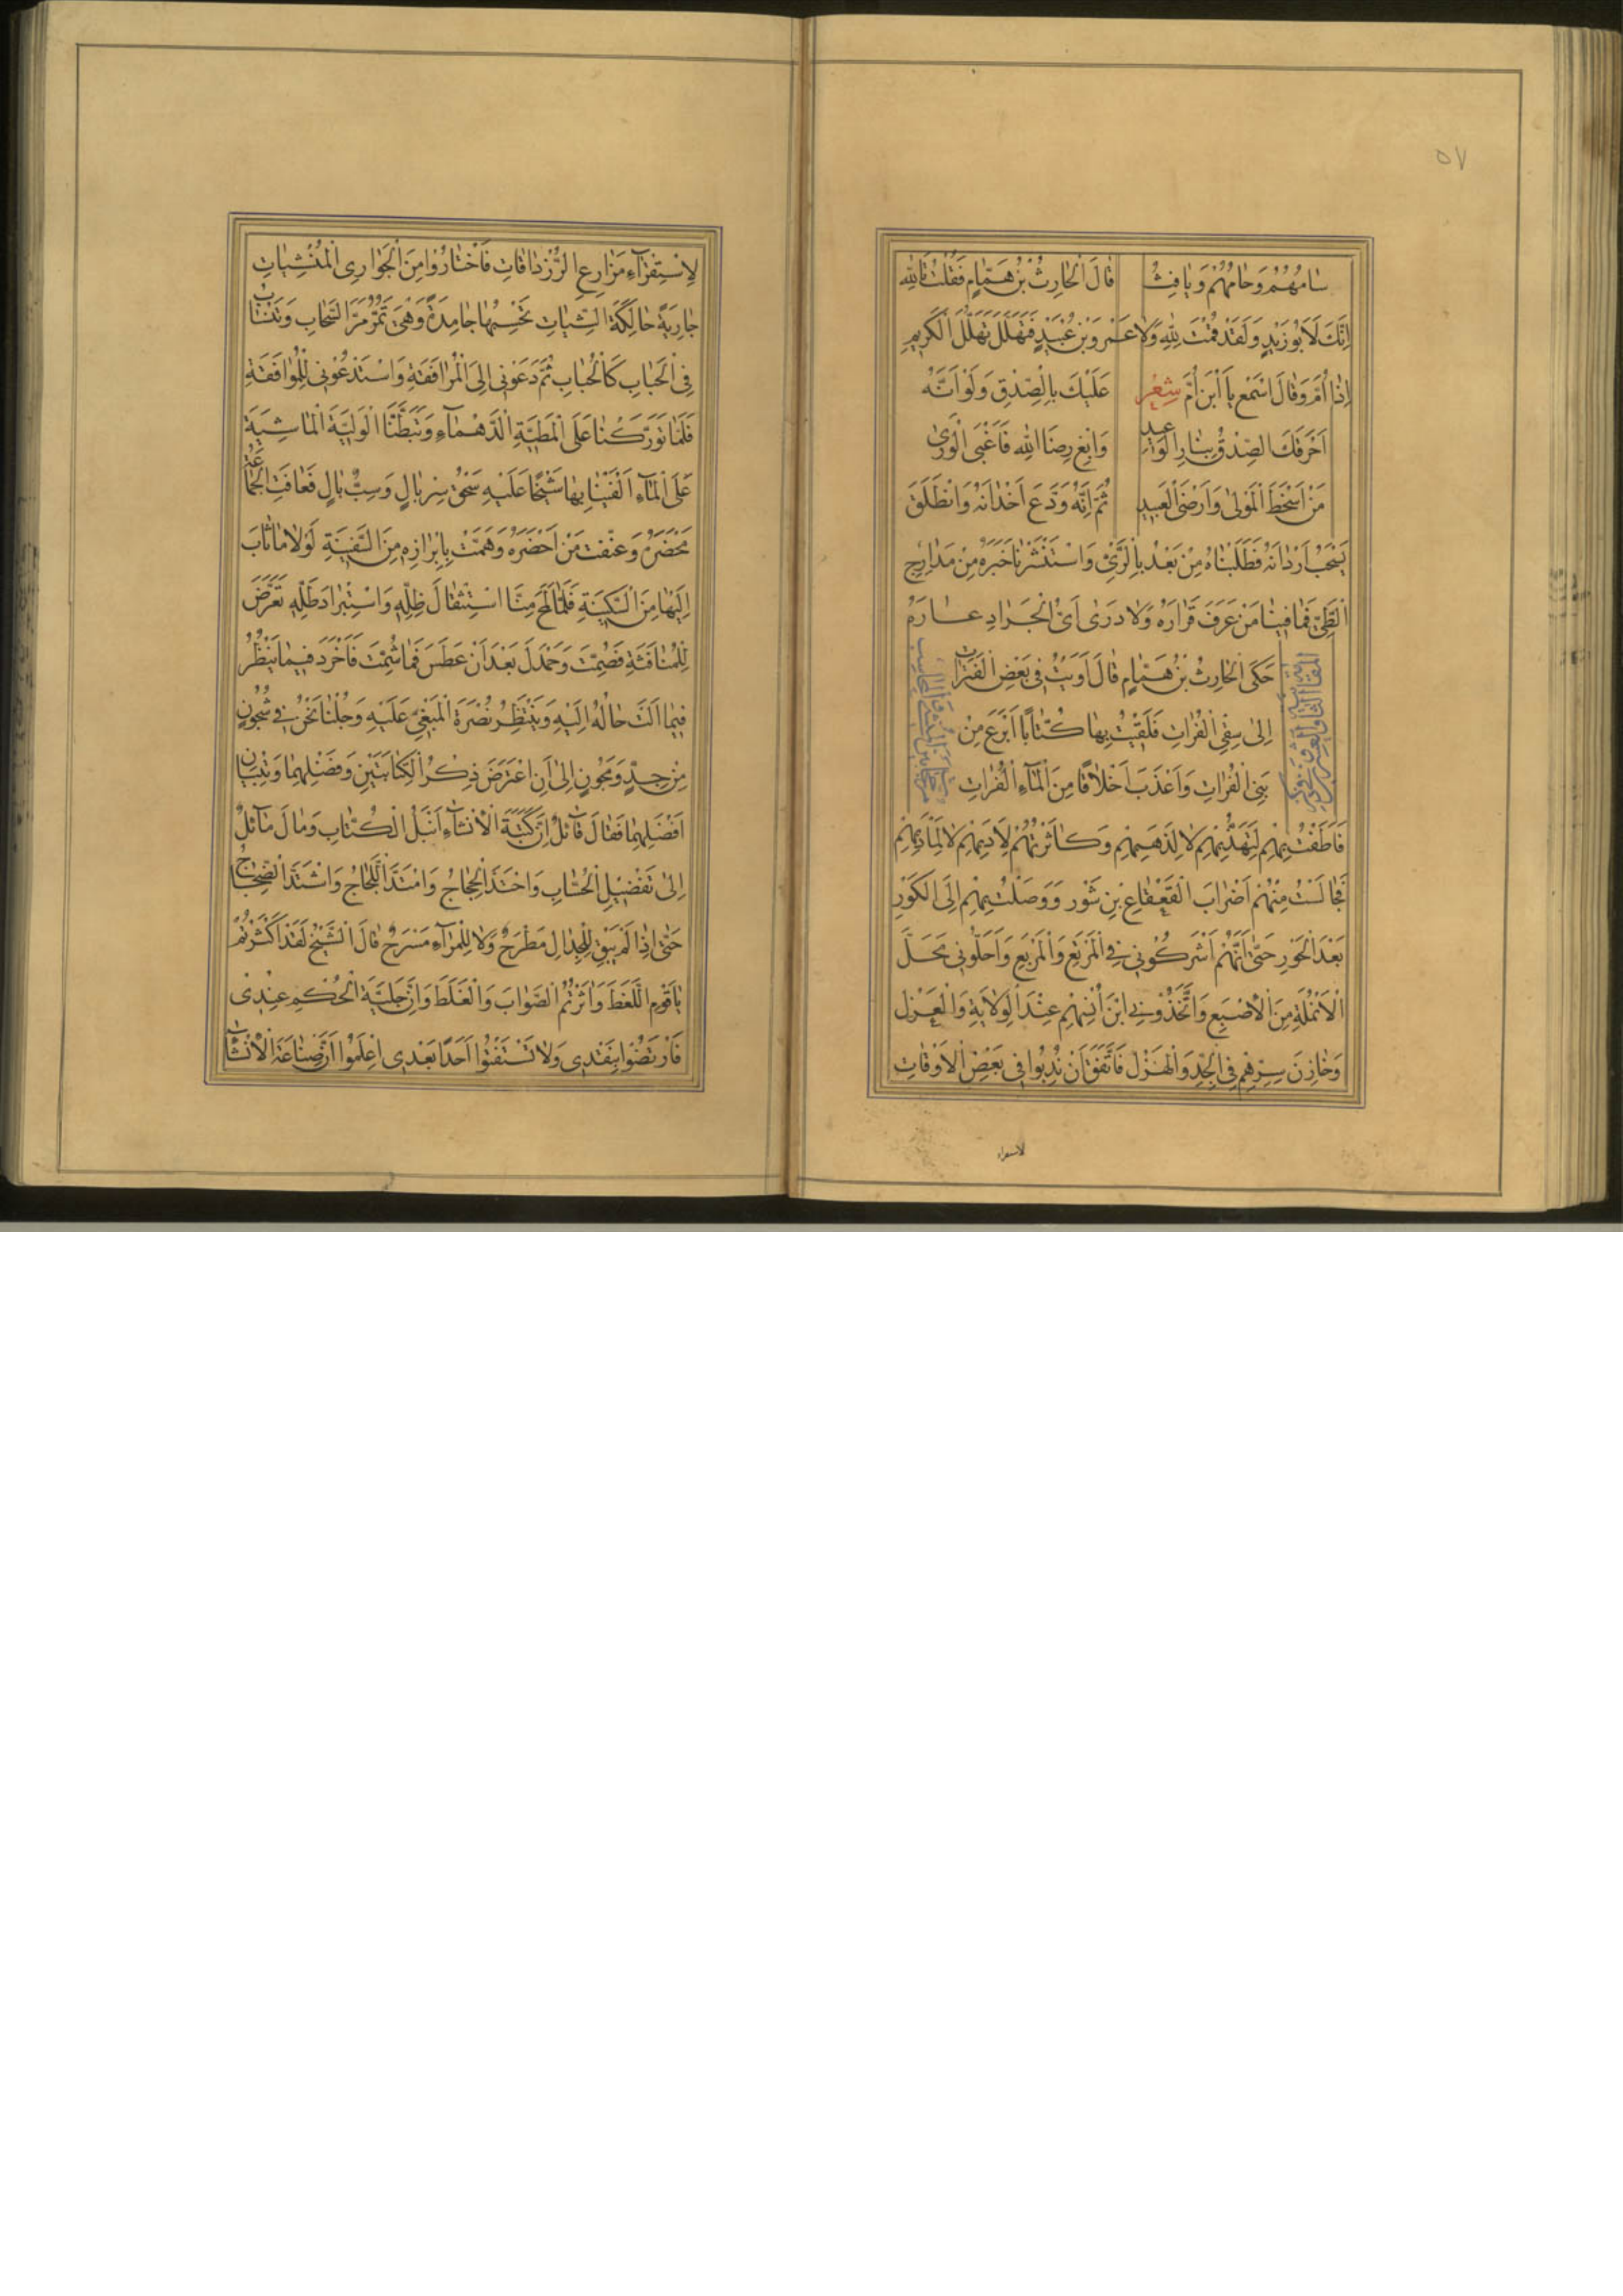 ٥٧
سٰامُهُمْ وَحٰامُهُمْ وَيٰافِثُ قٰالَ الْحٰارِثُ بْنُ هَمّٰامٍ فَقُلْتُ تَاللّٰهِ
اِنَّكَ لَاَبُوزَيْدٍ وَلَقَدْ قُمْتَ لِلّٰهِ وَلٰا عَمْرَوبْنَ عُبَيْدٍ فَهَلَّلَ تَهَلُّلَ الْكَرِيمِ
اِذٰا اُمَّ وَقٰالَ اسْمَعْ يَا ابْنَ اُمَّ شِعْر عَلَيْكَ بِالْصِّدْقِ وَلَوْ اَنَّهُ
اَحْرَقَكَ الصِّدْقُ بِنٰارِ الْوَعِيدِ وَابْغِ رِضَا اللّٰهِ فَاَغْبَى الْوَرىٰ
مَنْ اَسْخَطَ الْمَوْلىٰ وَاَرْضَى الْعَبِيدِ ثُمَّ اِنَّهُ وَدَّعَ اَخْدٰانَهُ وَانْطَلَقَ
يَسْحَبُ اَرْدٰانَهُ فَطَلَبْنٰاهُ مِنْ بَعْدُ بِالرَّيِّ وَاسْتَنْشَرْنٰا خَبَرَهُ مِنْ مَدٰارِجِ
الْطَّيِّ فَمٰا فِينٰا مَنْ عَرَفَ قَرٰارَهُ وَلٰا دَرىٰ اَيُّ الْجَرٰادِ عٰارَهُ
حَكَى الْحٰارِثُ بْنُ هَمّٰامٍ قٰالَ اَوَيْتُ فِى بَعْضِ الْفَتَرٰاتِ
اِلىٰ سِقْيِ الْفُرٰاتِ فَلَقِيتُ بِهٰا كُتّٰابًا اَبْرَعَ مِنْ
بَنِى الْفُرٰاتِ وَاَعْذَبَ اَخْلٰاقًا مِنَ الْمٰاءِ الْفُرٰاتِ
فَاَطَفْتُ بِهِمْ لِتَهَذُّبِهِمْ لٰا لِذَهَبِهِمْ وَكٰاثَرْتُهُمْ لِاَدَبِهِمْ لٰا لِمَآدِبِهِمْ
فَجٰالَسْتُ مِنْهُمْ اَضْرٰابَ الْقَعْقٰاعِ بْنِ شَوْرٍ وَوَصَلْتُ بِهِمْ اِلَى الْكَوْرِ
بَعْدَ الْحَوْرِ حَتّٰى اَنَّهُمْ اَشْرَكُونِى فِى الْمَرْتَعِ وَالْمَرْبَعِ وَاَحَلُّونِى مَحَلَّ
الْاَنْمُلَةِ مِنَ الْاِصْبَعِ وَاتَّخَذُونِى ابْنَ اُنْسِهِمْ عِنْدَ الْوِلٰايَةِ وَالْعَزْلِ
وَخٰازِنَ سِرِّهِمْ فِى الْجِدِّ وَالْهَزْلِ فَاتَّفَقَ اَنْ نُدِبُوا فِى بَعْضِ الْاَوْقٰاتِ
لاستقراء
لِاسْتِقْرٰاءِ مَزٰارِعِ الرُّزْدٰاقٰاتِ فَاخْتٰارُوا مِنَ الْجَوٰارِى الْمُنْشَئٰاتِ
جٰارِيَةً حٰالِكَةَ الشِّيٰاتِ تَحْسِبُهٰا جٰامِدَةً وَهْىَ تَمُرُّ مَرَّ السَّحٰابِ وَتَنْسٰابُ
فِى الْحَبٰابِ كَالْحُبٰابِ ثُمَّ دَعَوْنِى اِلَى الْمُرٰافَقَةِ وَاسْتَدْعُونِى لِلْمُوٰافَقَةِ
فَلَمّٰا تَوَرَّكْنٰا عَلَى الْمَطِيَّةِ الدَّهْمٰاءِ وَتَبَطَّنَّا الْوَلِيَّةَ الْمٰاشِيَةَ
عَلَى الْمٰاءِ اَلْفَيْنٰا بِهٰا شَيْخًا عَلَيْهِ سَحْقُ سِرْبٰالٍ وَسِبٌّ بٰالٍ فَعٰافَتِ الْجَمٰاعَةُ
مَحْضَرَهُ وَعَنَّفَتْ مَنْ اَحْضَرَهُ وَهَمَّتْ بِاِبْرٰازِهِ مِنَ السَّفِينَةِ لَوْلٰا مٰا ثٰابَ
اِلَيْهٰا مِنَ السَّكِينَةِ فَلَمّٰا لَمَحَ مِنَّا اسْتِثْقٰالَ ظِلِّهِ وَاسْتِبْرٰادَ طَلِّهِ تَعَرَّضَ
لِلْمُنٰافَثَةِ فَصُمِّتَ وَحَمْدَلَ بَعْدَ اَنْ عَطَسَ فَمٰا شُمِّتَ فَاَخْرَدَ فِيمٰا يَنْظُرُ
فِيمٰا آلَتْ حٰالُهُ اِلَيْهِ وَيَنْتَظِرُ نُصْرَةَ الْمَبْغِيِّ عَلَيْهِ وَجُلْنٰا نَحْنُ فِى شُجُونٍ
مِنْ جِدٍّ وَمُجُونٍ اِلىٰ اَنِ اعْتَرَضَ ذِكْرُ الْكِتٰابَتَيْنِ وَفَضْلِهِمٰا وَتِبْيٰانِ
اَفْضَلِهِمٰا فَقٰالَ قٰائِلٌ اِنَّ كَتَبَةَ الْاِنْشٰاءِ اَنْبَلُ الْكُتّٰابِ وَمٰالَ مٰائِلٌ
اِلىٰ تَفْضِيلِ الْحُسّٰابِ وَاحْتَدَّ الْحِجٰاجُ وَامْتَدَّ الْلَّجٰاجُ وَاشْتَدَّ الضَّجٰاجُ
حَتّٰى اِذٰا لَمْ يَبْقَ لِلْجِدٰالِ مَطْرَحٌ وَلٰا لِلْمِرٰاءِ مَسْرَحٌ قٰالَ الشَّيْخُ لَقَدْ اَكْثَرْتُمْ
يٰا قَوْمِ الْلَّغَطَ وَاَثَرْتُمُ الصَّوٰابَ وَالْغَلَطَ وَاِنَّ جَلِيَّةَ الْحُكْمِ عِنْدِى
فَارْتَضُوا بِنَقْدِى وَلٰا تَسْتَفْتُوا اَحَدًا بَعْدِى اعْلَمُوا اَنَّ صِنٰاعَةَ الْاِنْشٰاءِ